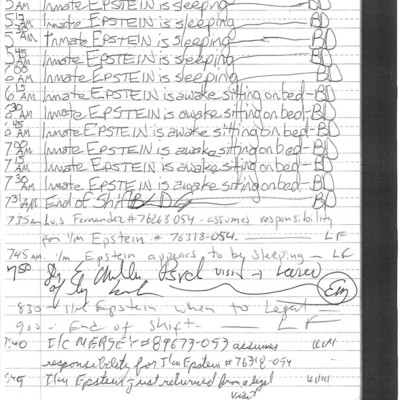 5AM Inmate EPSTEIN is sleeping BD
515 AM Inmate EPSTEIN is sleeping BD
530 AM Inmate EPSTEIN is sleeping BD
545 AM Inmate EPSTEIN is sleeping BD
600 AM Inmate EPSTEIN is sleeping BD
615 AM Inmate EPSTEIN is awake sitting on bed - BD
630 AM Inmate EPSTEIN is awake sitting on bed - BD
645 AM Inmate EPSTEIN is awake sitting on bed - BD
700 AM Inmate EPSTEIN is awake sitting on bed - BD
715 AM Inmate EPSTEIN is awake sitting on bed - BD
730 AM Inmate EPSTEIN is awake sitting on bed - BD
AM End of Shift
735AM Luis Fernandez # 76268-054 - assumes responsibility
for I/m Epstein # 76318-054. LF
745AM I/m Epstein appears to be sleeping - LF
750 Psych visit
830 - I/m Epstein when to Legal
900 - End of shift. LF
:40 I/C MERSEY # 89673-053 assumes
responsibility for I/m Epstein # 76318-054
I/m Epstein just returned from a legal
visit